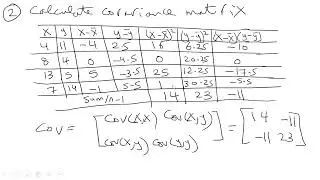 ② Calculate covariance matrix
x y x-x̄ y-ȳ (x-x̄)² (y-ȳ)² (x-x̄)(y-ȳ)
4 11 -4 2.5 16 6.25 -10
8 4 0 -4.5 0 20.25 0
13 5 5 -3.5 25 12.25 -17.5
7 14 -1 5.5 1 30.25 -5.5
Sum/n-1 14 23 -11
Cov = [ Cov(x,x) Cov(x,y) ] = [ 14 -11 ]
[ Cov(x,y) Cov(y,y) ] [ -11 23 ]